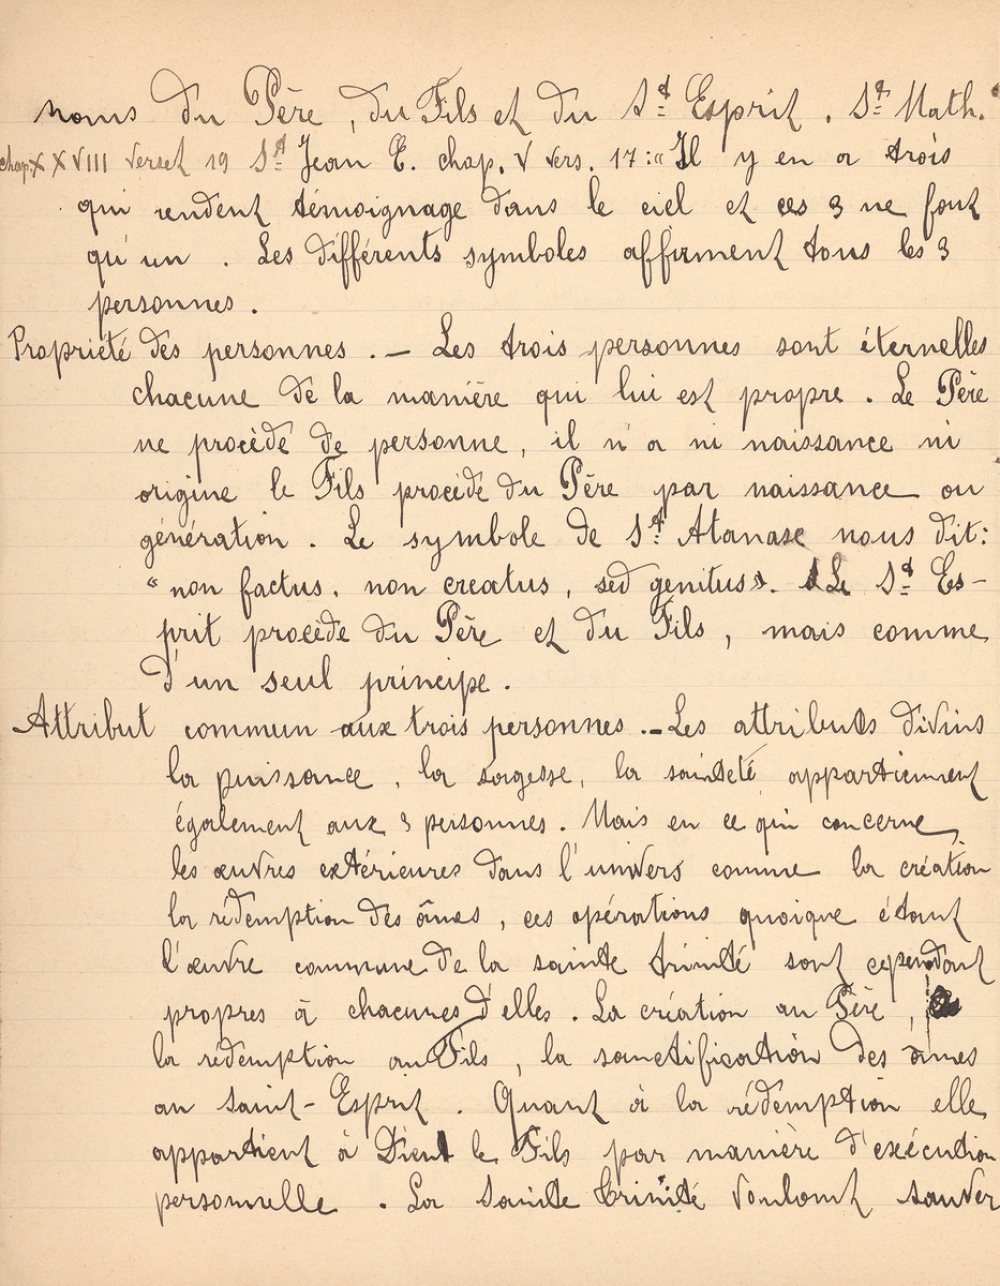 noms du Père, du Fils et du St Esprit. St Math.
chap. XXVIII verset 19 St Jean E. chap. V vers. 17 : « Il y en a trois
qui rendent témoignage dans le ciel et ces 3 ne font
qu'un. Les différents symboles affirment tous les 3
personnes.
Propriété des personnes. — Les trois personnes sont éternelles
chacune de la manière qui lui est propre. Le Père
ne procède de personne, il n'a ni naissance ni
origine le Fils procède du Père par naissance ou
génération. Le symbole de St Atanase nous dit :
"non factus, non creatus, sed genitus". Le St Es-
prit procède du Père et du Fils, mais comme
d'un seul principe.
Attribut commun aux trois personnes. — Les attributs divins
la puissance, la sagesse, la sainteté appartiennent
également aux 3 personnes. Mais en ce qui concerne
les œuvres extérieures dans l'univers comme la création
la rédemption des âmes, ces opérations quoique étant
l'œuvre commune de la sainte trinité sont cependant
propres à chacunes d'elles. La création au Père,
la rédemption au Fils, la sanctification des âmes
au Saint-Esprit. Quant à la rédemption elle
appartient à Dieu le Fils par manière d'exécution
personnelle. La Sainte Trinité voulant sauver